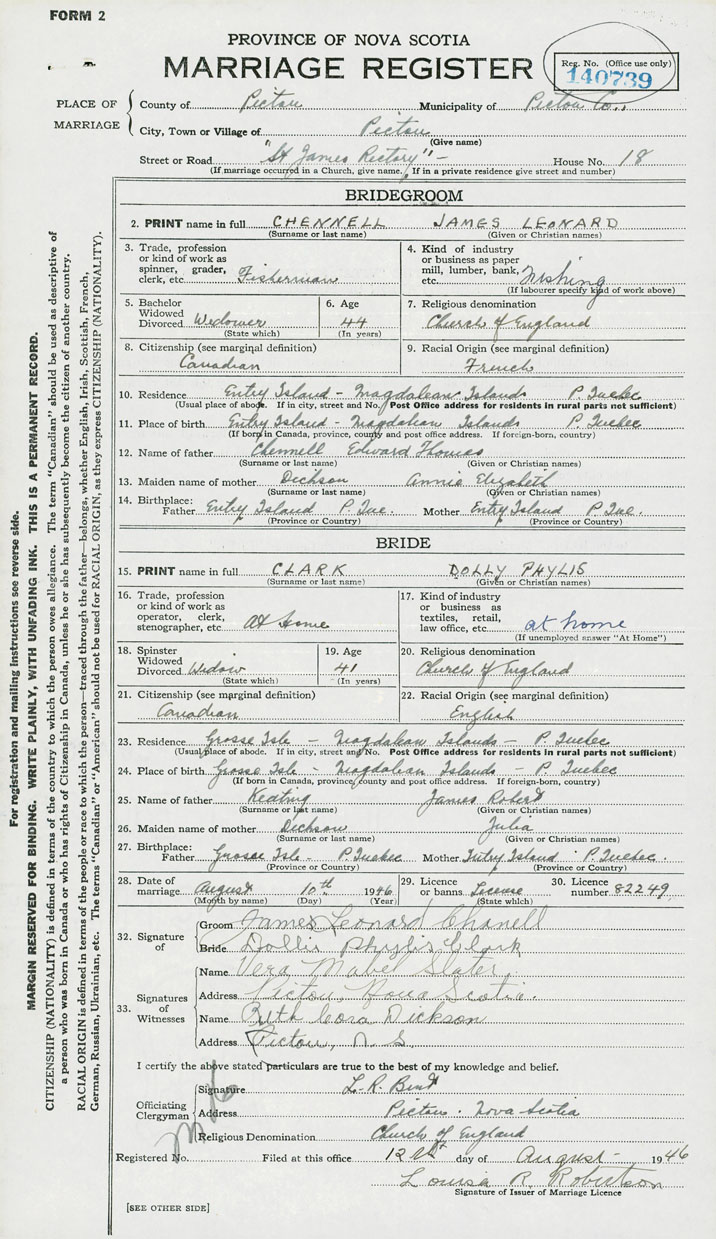 FORM 2
PROVINCE OF NOVA SCOTIA
MARRIAGE REGISTER
Reg. No. (Office use only)
140739
PLACE OF MARRIAGE
County of Pictou Municipality of Pictou Co.
City, Town or Village of Pictou
(Give name)
Street or Road "St James Rectory" - House No. 18
(If marriage occurred in a Church, give name. If in a private residence give street and number)
BRIDEGROOM
2. PRINT name in full CHENNELL JAMES LEONARD
(Surname or last name) (Given or Christian names)
3. Trade, profession or kind of work as spinner, grader, clerk, etc. Fisherman
4. Kind of industry or business as paper mill, lumber, bank, etc. Fishing
(If labourer specify kind of work above)
5. Bachelor Widowed Divorced Widower
(State which)
6. Age 44
(In years)
7. Religious denomination
Church of England
8. Citizenship (see marginal definition)
Canadian
9. Racial Origin (see marginal definition)
French
10. Residence Entry Island - Magdalean Islands P. Quebec
(Usual place of abode. If in city, street and No. Post Office address for residents in rural parts not sufficient)
11. Place of birth Entry Island - Magdalian Islands P. Quebec
(If born in Canada, province, county and post office address. If foreign-born, country)
12. Name of father Chennell Edward Thomas
(Surname or last name) (Given or Christian names)
13. Maiden name of mother Dickson Annie Elizabeth
(Surname or last name) (Given or Christian names)
14. Birthplace:
Father Entry Island P. Que. Mother Entry Island P. Que.
(Province or Country) (Province or Country)
BRIDE
15. PRINT name in full CLARK DOLLY PHYLIS
(Surname or last name) (Given or Christian names)
16. Trade, profession or kind of work as operator, clerk, stenographer, etc. At Home
17. Kind of industry or business as textiles, retail, law office, etc. at home
(If unemployed answer "At Home")
18. Spinster Widowed Divorced Widow
(State which)
19. Age 41
(In years)
20. Religious denomination
Church of England
21. Citizenship (see marginal definition)
Canadian
22. Racial Origin (see marginal definition)
English
23. Residence Grosse Isle - Magdalean Islands - P. Quebec
(Usual place of abode. If in city, street and No. Post Office address for residents in rural parts not sufficient)
24. Place of birth Grosse Isle - Magdalian Islands - P. Quebec
(If born in Canada, province, county and post office address. If foreign-born, country)
25. Name of father Keating James Robert
(Surname or last name) (Given or Christian names)
26. Maiden name of mother Dickson Julia
(Surname or last name) (Given or Christian names)
27. Birthplace:
Father Grosse Isle - P. Quebec Mother Entry Island P. Quebec.
(Province or Country) (Province or Country)
28. Date of marriage August 10th 1946
(Month by name) (Day) (Year)
29. Licence or banns License
(State which)
30. Licence number 82249
32. Signature of
Groom James Leonard Chanell
Bride Dollie Phylis Clark
33. Signatures of Witnesses
Name Vera Mabel Slater
Address Pictou, Nova Scotia.
Name Ruth Cora Dickson
Address Pictou, N.S.
I certify the above stated particulars are true to the best of my knowledge and belief.
Officiating Clergyman
Signature L. R.
Address Pictou. Nova Scotia
Religious Denomination Church of England
Registered No. Filed at this office 12th day of August - 1946
Louisa R. Robertson
Signature of Issuer of Marriage Licence
[SEE OTHER SIDE]
For registration and mailing instructions see reverse side.
MARGIN RESERVED FOR BINDING. WRITE PLAINLY, WITH UNFADING INK. THIS IS A PERMANENT RECORD.
CITIZENSHIP (NATIONALITY) is defined in terms of the country to which the person owes allegiance. The term "Canadian" should be used as descriptive of
a person who was born in Canada or who has rights of Citizenship in Canada, unless he or she has subsequently become the citizen of another country.
RACIAL ORIGIN is defined in terms of the people or race to which the person—traced through the father—belongs, whether English, Irish, Scottish, French,
German, Russian, Ukrainian, etc. The terms "Canadian" or "American" should not be used for RACIAL ORIGIN, as they express CITIZENSHIP (NATIONALITY).